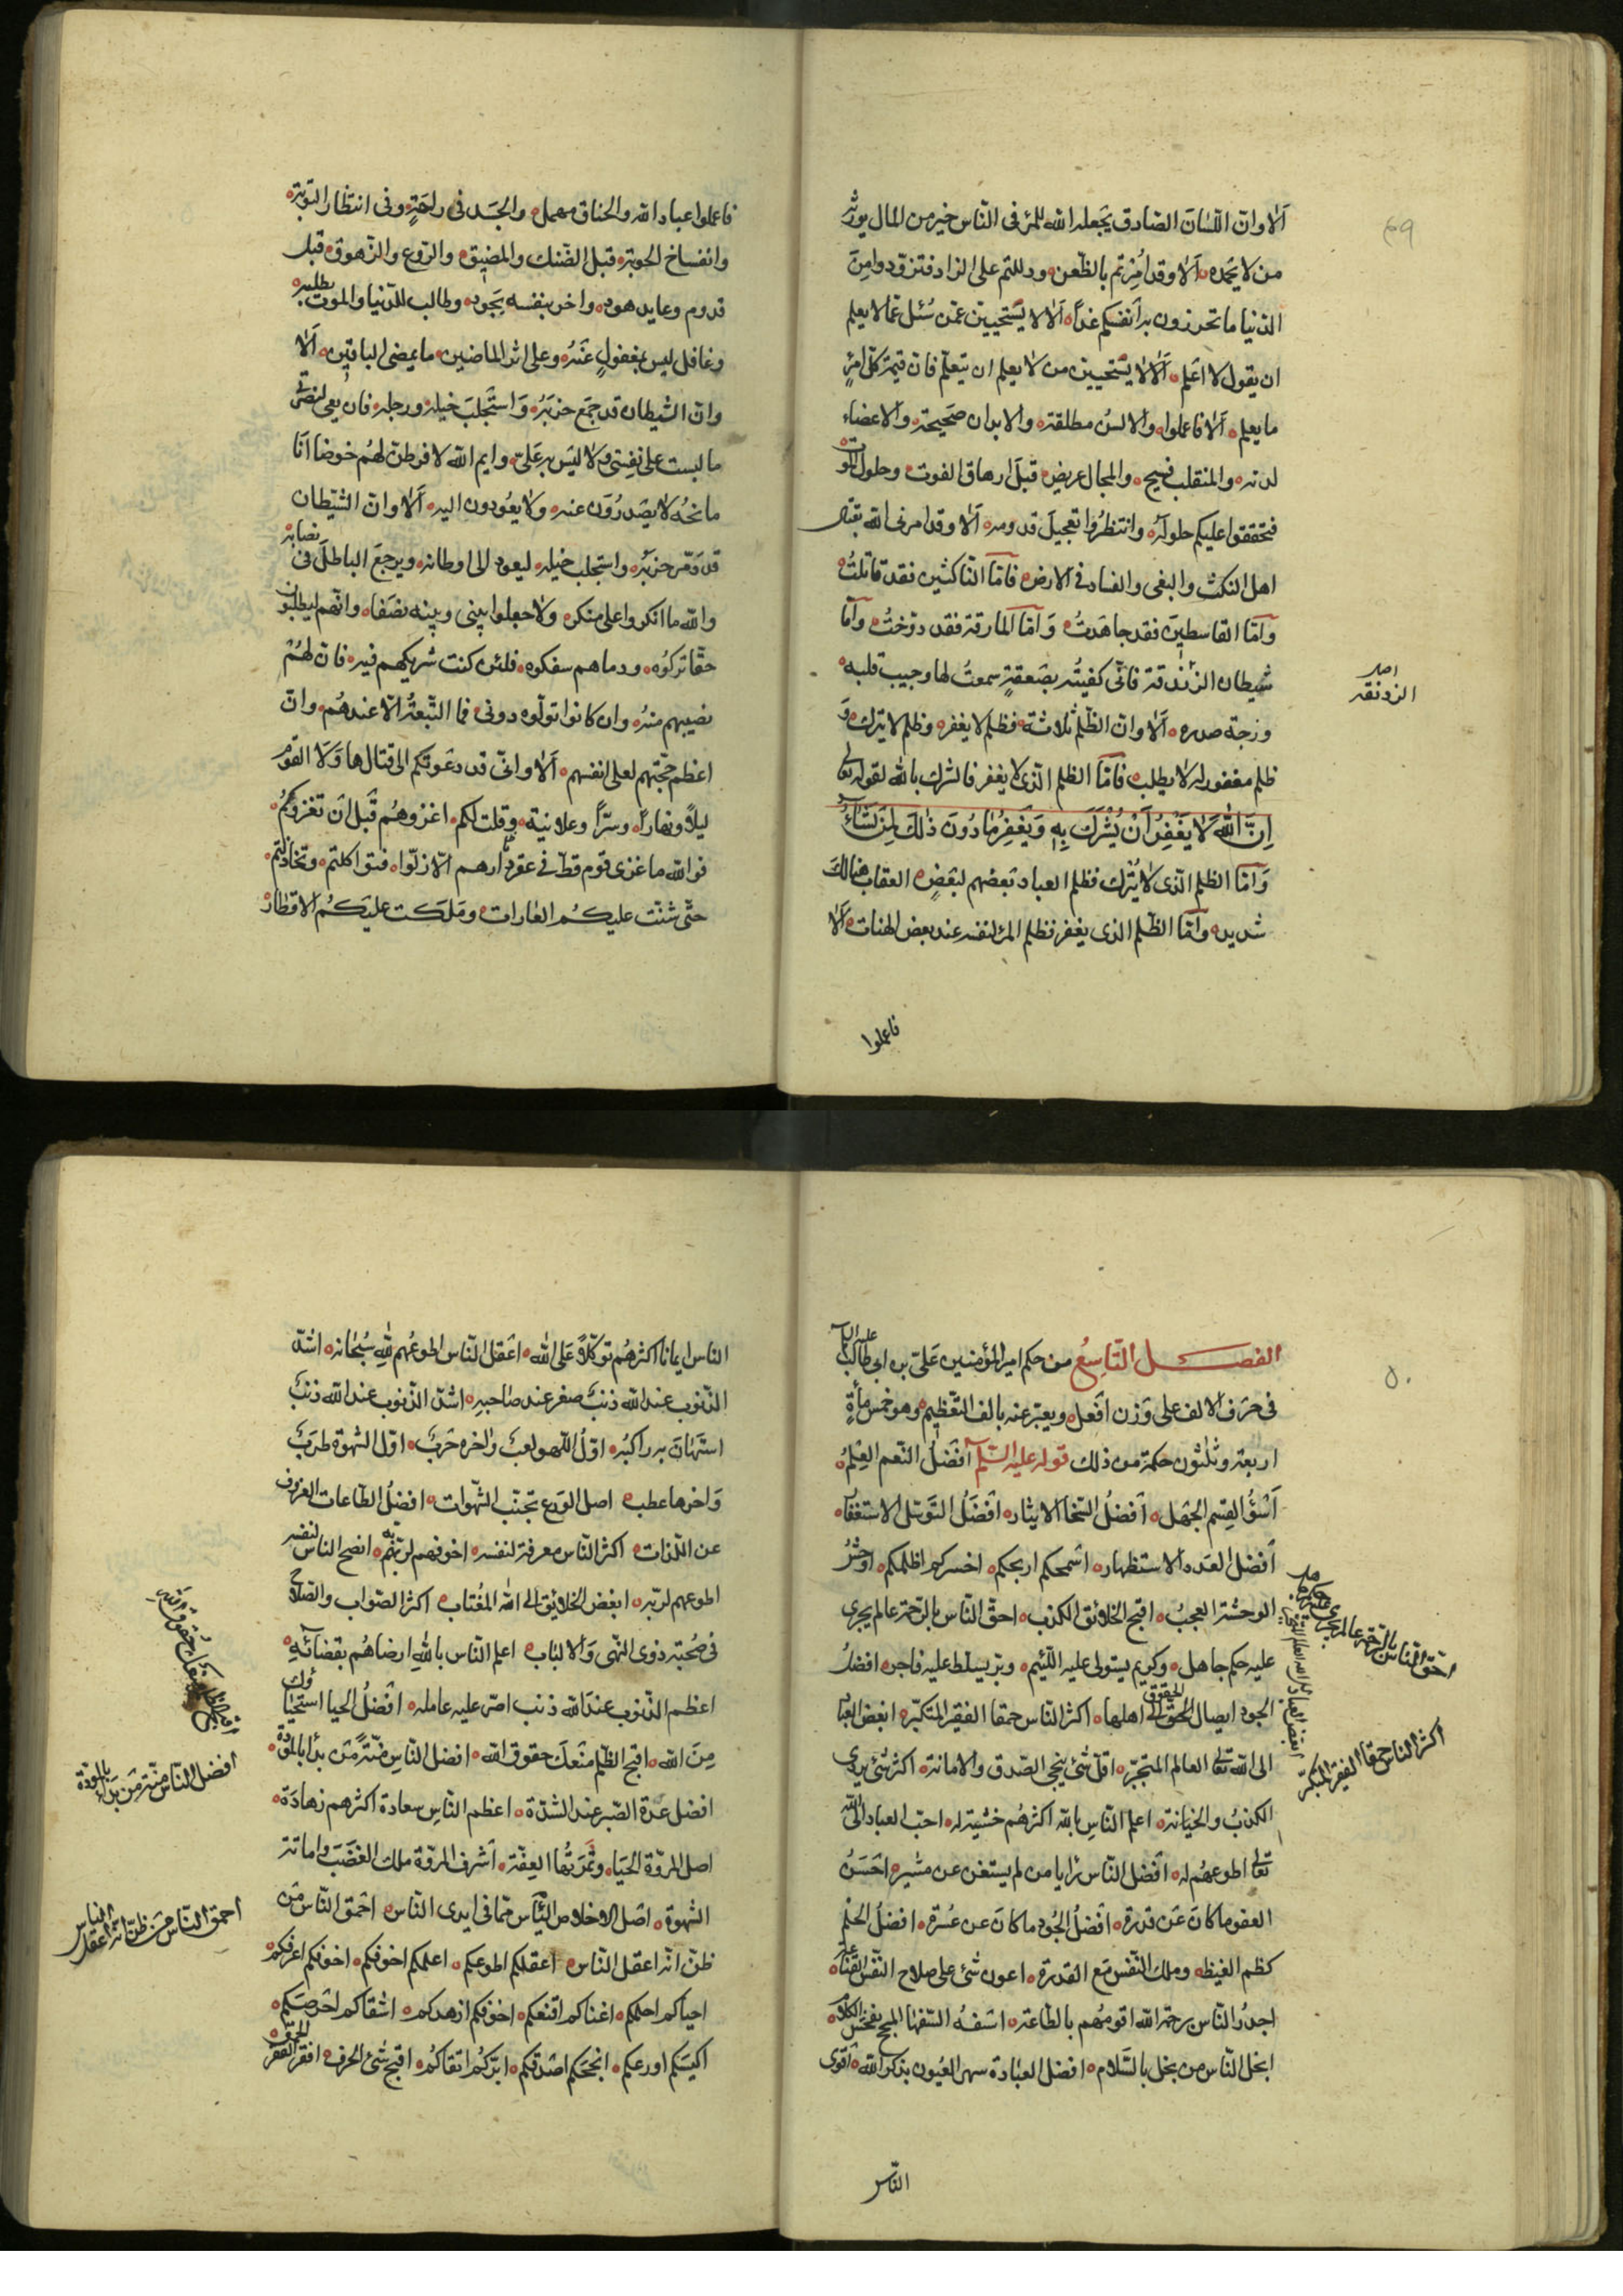 ۴۹
اَلا وان اللّسان الصّادق يجعله الله للمرء فى النّاس خير من المال يورثه
من لا يحمده اَلا وقد اُمِرتم بالظّعن ودللتم على الزاد فتزوّدوا مِنَ
الدّنيا ما تحرزون به اَنفسكم غداً اَلا لا يَسْتحيين عمّن سُئل عمّا لا يعلم
ان يقول لا اعلم اَلا لا يَسْتحيين من لا يعلم ان يتعلّم فان قيمة كلّ امرءٍ
ما يعلم اَلا فاعملوا والالسُن مطلقة والابدان صَحيحة والاعضاء
لدنه والمنقلب فسيح والمجال عريض قبلَ ارهاق الفوت وحلول الموت
فتحققوا عليكم حلوله وانتظرُوا تعجيل قدومه اَلا وقد امرنى الله بقتال
اهل النكث والبغى والفساد فى الارض فامّا النّاكثين فقد قاتلتُ
وَامّا القاسطينَ فقد جاهَدتُ وَامّا المارقة فقد دوّختُ وامّا
شيطان الزندقة فانّى كفيتُه بصَعقةٍ سمعتُ لها وجيب قلبه
اصل
الردنقه
ورجّة صدره اَلا وان الظّلم ثلاثة فظلم لا يغفر وظلم لا يترك وَ
ظلم مغفور لا يطلب فامّا الظلم الّذى لا يغفر فالشرك بالله لقوله تعالى
اِنَّ اللّٰهَ لا يَغْفِرُ اَنْ يُشْرَكَ بِهِ وَيَغْفِرُ مٰا دُونَ ذٰلِكَ لِمَنْ يَشٰآءُ
وَامّا الظلم الّذى لا يُترك فظلم العباد بَعضهم لبَعضٍ العقاب هنالكَ
شديد وامّا الظّلم الذى يغفر فظلم المرء لنفسه عند بعض الهنات اَلا
فاعملوا
فاعملوا عباد الله والخناق مهمل والجسَد فى راحَةٍ وفى انتظار التّوبة
وانفساخ الحوبة قبل الضّنك والمضيق والرّوع والزّهوق قبل
قدوم وعايد هود واخر بنفسه يَجود وطالب للدّنيا والموت يطلبه
وغافل ليس بمغفولٍ عَنهُ وعلى اثر الماضين ما يمضى الباقين اَلا
وان الشّيطان قد جمَع حزبَهُ وَاستَجلبَ خيله ورجله فان معى لبصيرتى
ما لبست على نفسِى ولا ليس به عَلىّ وايم الله لافرطنّ لهُم حَوضا اَنا
ماتحُه لا يصَدرُوَن عنه ولا يعُودون اليه اَلا وان الشّيطان
قد ذمّر حزبُه واستجلب خيله ليعود الى اوطانه ويرجعَ الباطلَ فى نصابه
والله ما انكروا على منكره ولا جعلوا بينى وبينه نصَفا وانّهم ليطلبون
حقّا تركوُه ودما هم سفكوه فلئن كنت شريكهم فيه فان لهُمْ
نصيبهم منهُ وان كانوا تولّوه دونى فما التّبعةُ الاّ عندهُم وانّ
اعظم حجّتهم لعلى انفسهم اَلا وانّى قد دعَوتكم الى قتال هاوَلاَء القوم
ليلاً ونهاراً وسرّاً وعلانية وقلت لكم اغزوهُم قَبل اَن تغزوكُم
فوالله ما غزى قوم قطّ فى عقر دارهم الاّ ذلّوا فتواكلتم وتخاذلتم
حتّى شنّت عليكُم الغارات ومَلكت عليَكُم الاقطار
۵۰
الفصَل التّاسِعُ من حكم امير المؤمنين عَلىّ بن ابى طالبٍ عليه السّلام
فى حَرَف الالف على وَزن اَفعل ويعبّر عنه بالف التّعظيم وهو خمس مأةٍ
اربعة وثلثون حكمة من ذلك قوله عليه السّلم اَفضَلُ النّعم العِلمُ
اَسْوَءُ القِسَم الجَهل اَفضلُ السّخاء الايثار افَضَلُ التّوسّل الاستغفاُر
اَفضل العَدد الاستظهار اسمحكم اربحكم اخسركم اظلمكم اوحشُ
الوحشة العجبُ اقبح الخلائق الكذب احقّ النّاس بالرّحمة عالم يجرى
عليه حكم جاهل وكريم يستولى عليه اللّئيم وبرّ يسلّط عليه فاجر افضلُ
الجود ايصال الحقوق الى اهلها اكثر النّاس حمقا الفقير المتكبّر ابغض العباد
الى الله تعالى العالم المتجبّر اقلّ شئ ينجى الصّدق والامانة اكثر شئ يردى
الكذبُ والخيانة اعلم النّاسِ بالله اكثرهُم خشية له احبّ العباد الى الله
تعالى اطوعهُم له افضل النّاس رايا من لم يستغن عن مشيرٍ احَسَنُ
العفو ما كانَ عَن قدرة افضلُ الجُود ما كانَ عن عُسْرة افضلُ الحلم
كظم الغيظ وملك النّفس مَع القدرة اعون شئ على صلاح النّفس القناعة
اجدرُ النّاس برحمة الله اقومُهم بالطّاعة اسَفهُ السّفهاء المبجح بفحش الكلام
ابخل النّاس من بخل بالسّلام افضل العبٰادة سهر العُيون بذكر الله اقوى
احقّ النّاس بالرّحمة عالم يجرى عليه حكم جاهل
ابغض العباد الى الله العالم المتجبّر
اكثر النّاس حمقا الفقير المتكبّر
النّاس
الناس ايمانا اكثرهُم توكّلاً عَلى الله اعَقل النّاس اطوعُهم لِلّهِ سُبحٰانه اشدّ
الذّنوب عند الله ذنبٌ صغر عند صٰاحبهِ اشدّ الذّنوب عند الله ذنبٌ
استَهَانَ به راكبُه اوّلُ اللّهو لعبٌ واٰخره حَربٌ اوّل الشهوة طرَبٌ
وَاخرها عطب اصل الوَرع تجنّب الشّهوات افضلُ الطّاعات العزوف
عن اللّذات اكثر النّاس معرفة لنفسه اخوفهم لربّه انصح الناس لنفسه
اطوعهم لربّه ابغض الخلايق الى الله المُغتاب اكثر الصّواب والصّلاح
فى صُحبة ذوى النّهى وَالالباب اعلم النّاس باللهِ ارضاهُم بقضائهِ
اعظم الذّنوب عندَ الله ذنب اصرّ عليه عامله افَضلُ الحيا استحيٰاؤك
مِنَ الله اقبح الظّلم منعكَ حقوق الله افضل النّاسِ منّةً مَن بدأ بالمودّة
افضل عدّة الصّبر عند الشدّة اعظم النّاسِ سعادة اكثرهم زهادَة
اصل المروّة الحَياء وثَمرَتُها العِفّة اَشرف المروّة ملك الغضَب واماتة
الشّهوة اصَل الاخلاص اليَأس ممّا فى ايدى النّاس احَمق النّاس مَن
ظنّ انّه اعقل النّاس اعقلكم اطوعكم اعلمكم اخوفكم اخوفكم اعرفكم
احياكم احلمكم اغناكم اقنعكم اخوفكم ازهدكم اشقاكم احَرصكم
اكيسَكم اورعكم انجحَكم اصَدقكم ابرّكُم اتقاكُم اقبح شئ الخرف افقر الفقر الحمق
اقبح الظّلم منعكَ حقوق الله
افضل النّاس منّة مَن بَدأ بالمودّة
احمق النّاس مَن ظنّ انّه اعقل النّاس